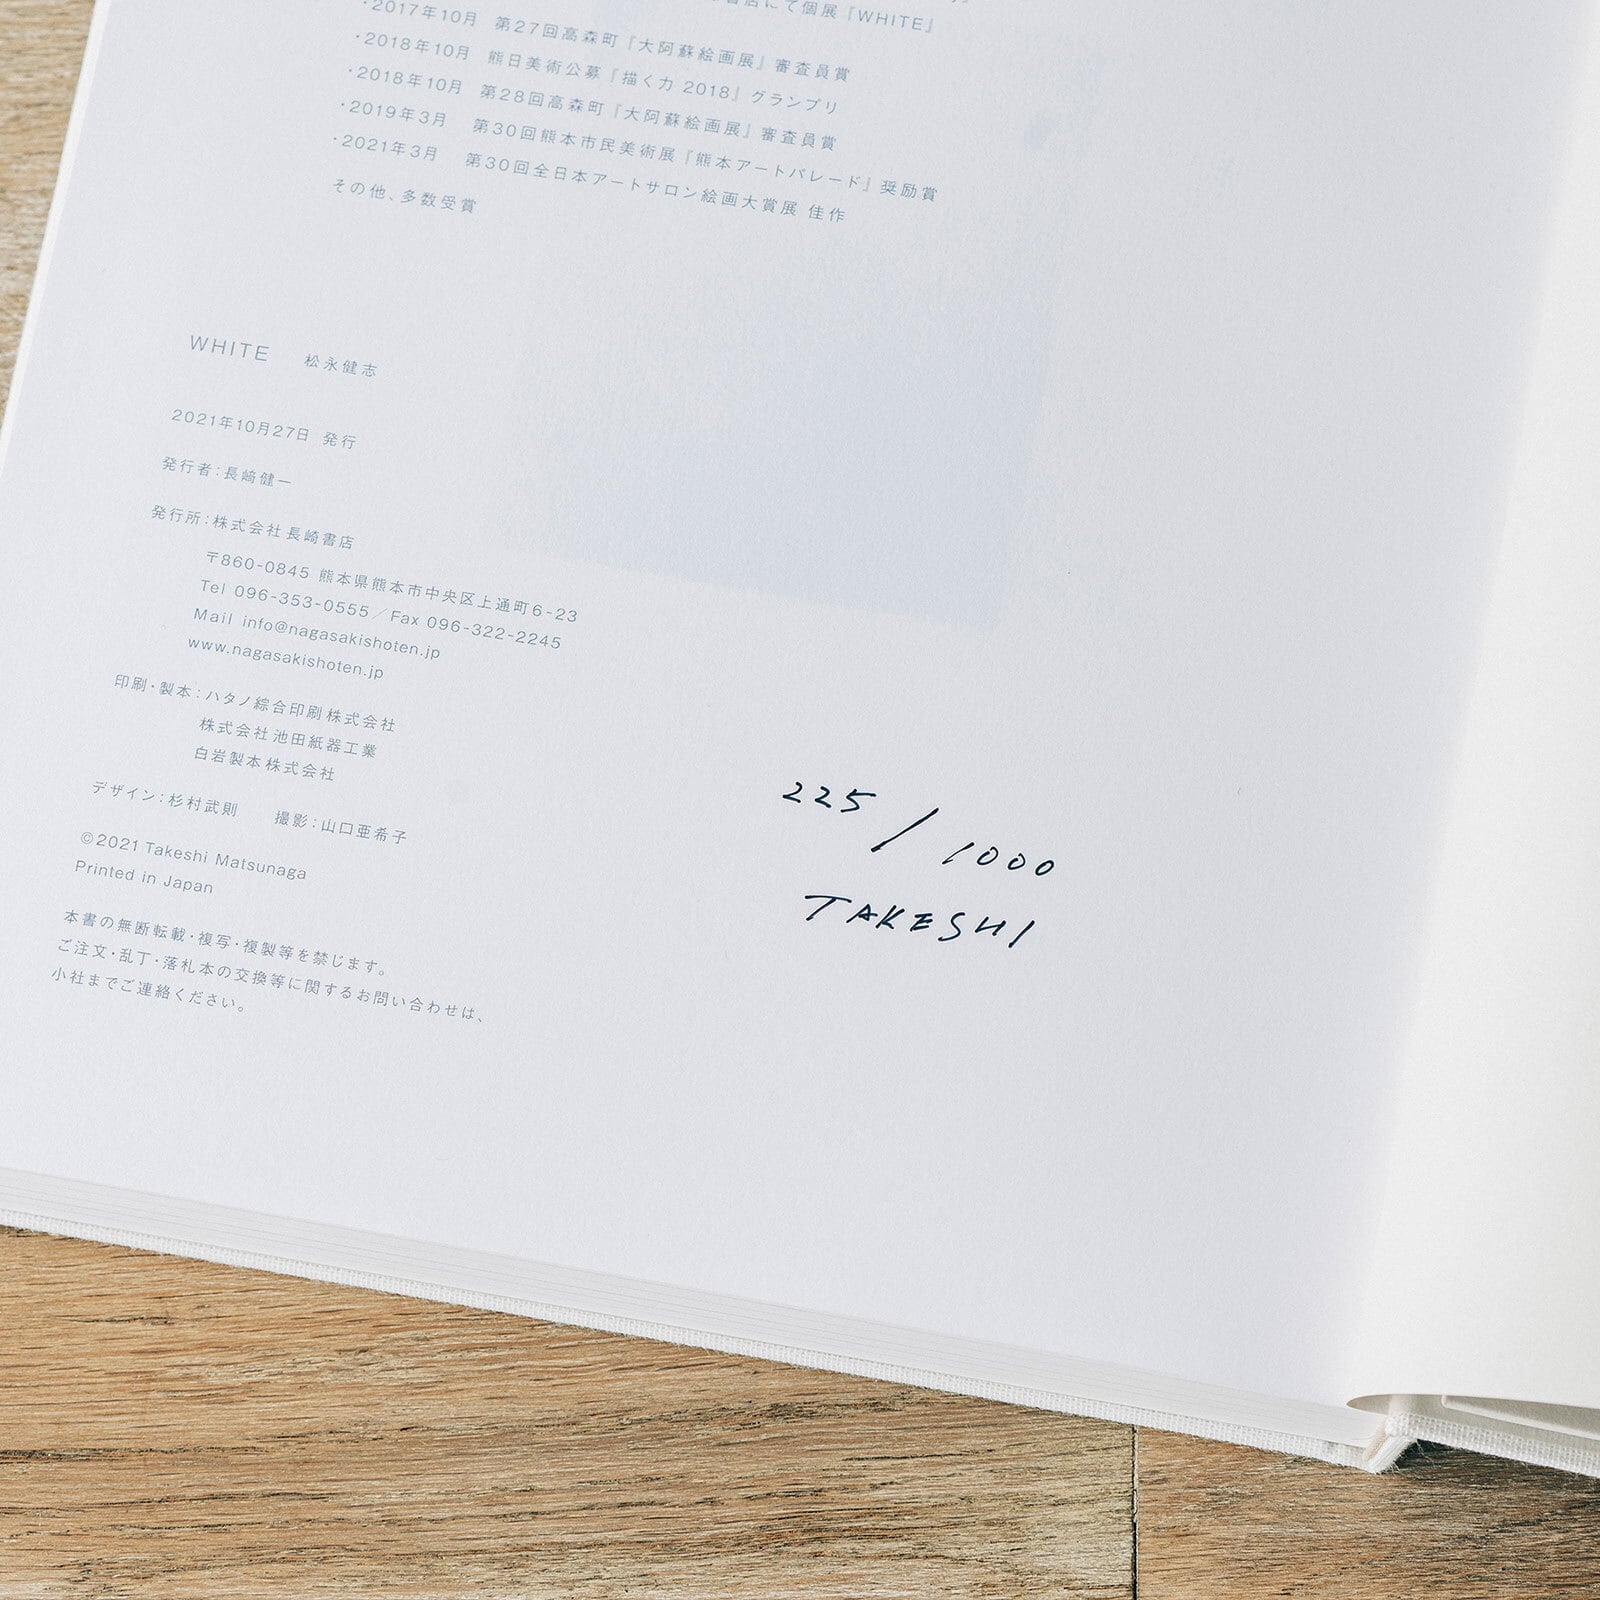 書店にて個展『WHITE』
・2017年10月 第27回高森町『大阿蘇絵画展』審査員賞
・2018年10月 熊日美術公募『描く力 2018』グランプリ
・2018年10月 第28回高森町『大阿蘇絵画展』審査員賞
・2019年3月 第30回熊本市民美術展『熊本アートパレード』奨励賞
・2021年3月 第30回全日本アートサロン絵画大賞展 佳作
その他、多数受賞
WHITE 松永健志
2021年10月27日 発行
発行者：長﨑健一
発行所：株式会社 長崎書店
〒860-0845 熊本県熊本市中央区上通町6-23
Tel 096-353-0555／Fax 096-322-2245
Mail info@nagasakishoten.jp
www.nagasakishoten.jp
印刷・製本：ハタノ綜合印刷 株式会社
株式会社 池田紙器工業
白岩製本 株式会社
デザイン：杉村武則 撮影：山口亜希子
©2021 Takeshi Matsunaga
Printed in Japan
本書の無断転載・複写・複製等を禁じます。
ご注文・乱丁・落札本の交換等に関するお問い合わせは、
小社までご連絡ください。
225/1000
TAKESHI